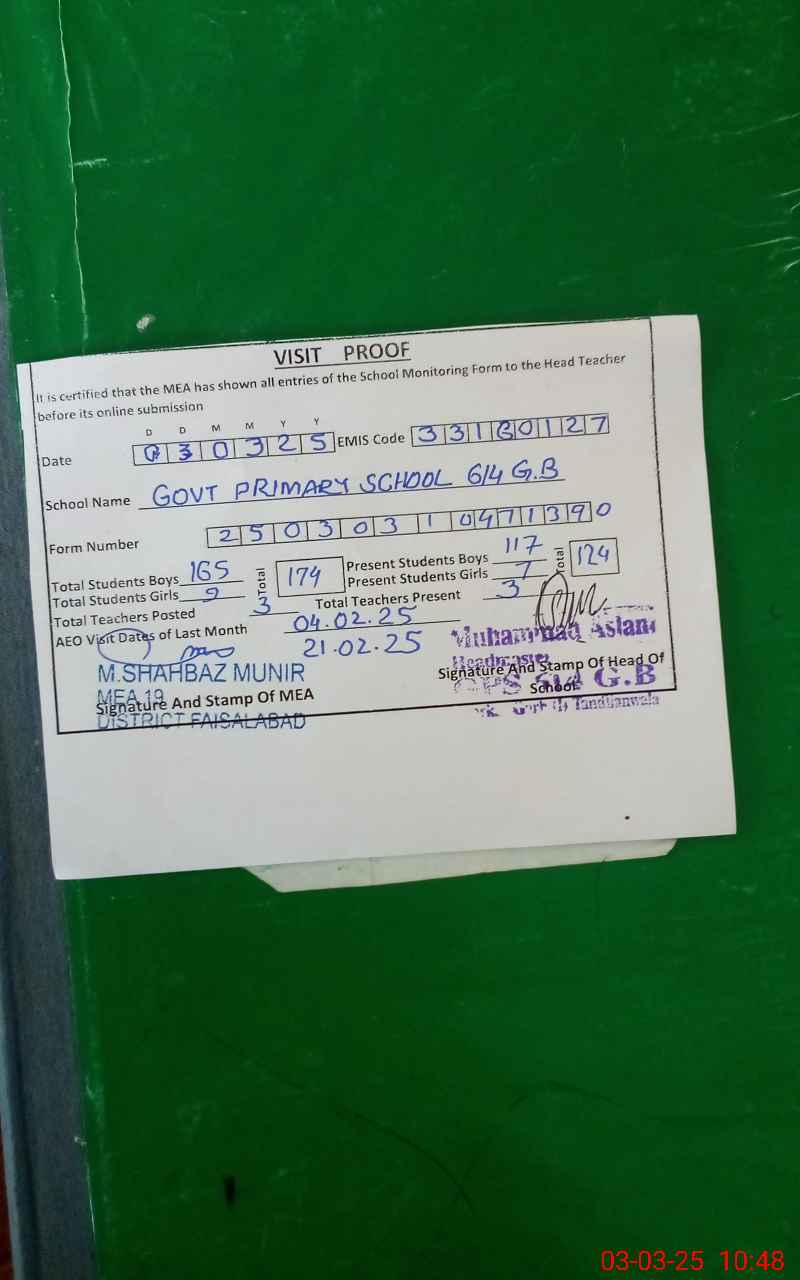 VISIT PROOF
It is certified that the MEA has shown all entries of the School Monitoring Form to the Head Teacher
before its online submission
D D M M Y Y
Date 0 3 0 3 2 5 EMIS Code 3 3 1 6 0 1 2 7
School Name GOVT PRIMARY SCHOOL 614 G.B
Form Number 2 5 0 3 0 3 1 0 4 7 1 3 9 0
Total Students Boys 165 Total 174 Present Students Boys 117 Total 124
Total Students Girls 9 Present Students Girls 7
Total Teachers Posted 3 Total Teachers Present 3
AEO Visit Dates of Last Month 04.02.25
21.02.25
M.SHAHBAZ MUNIR
MEA 19
Signature And Stamp Of MEA
DISTRICT FAISALABAD
Muhammad Aslam
Headmaster
Signature And Stamp Of Head Of
School
GPS 614 G.B
Tandlianwala
03-03-25 10:48